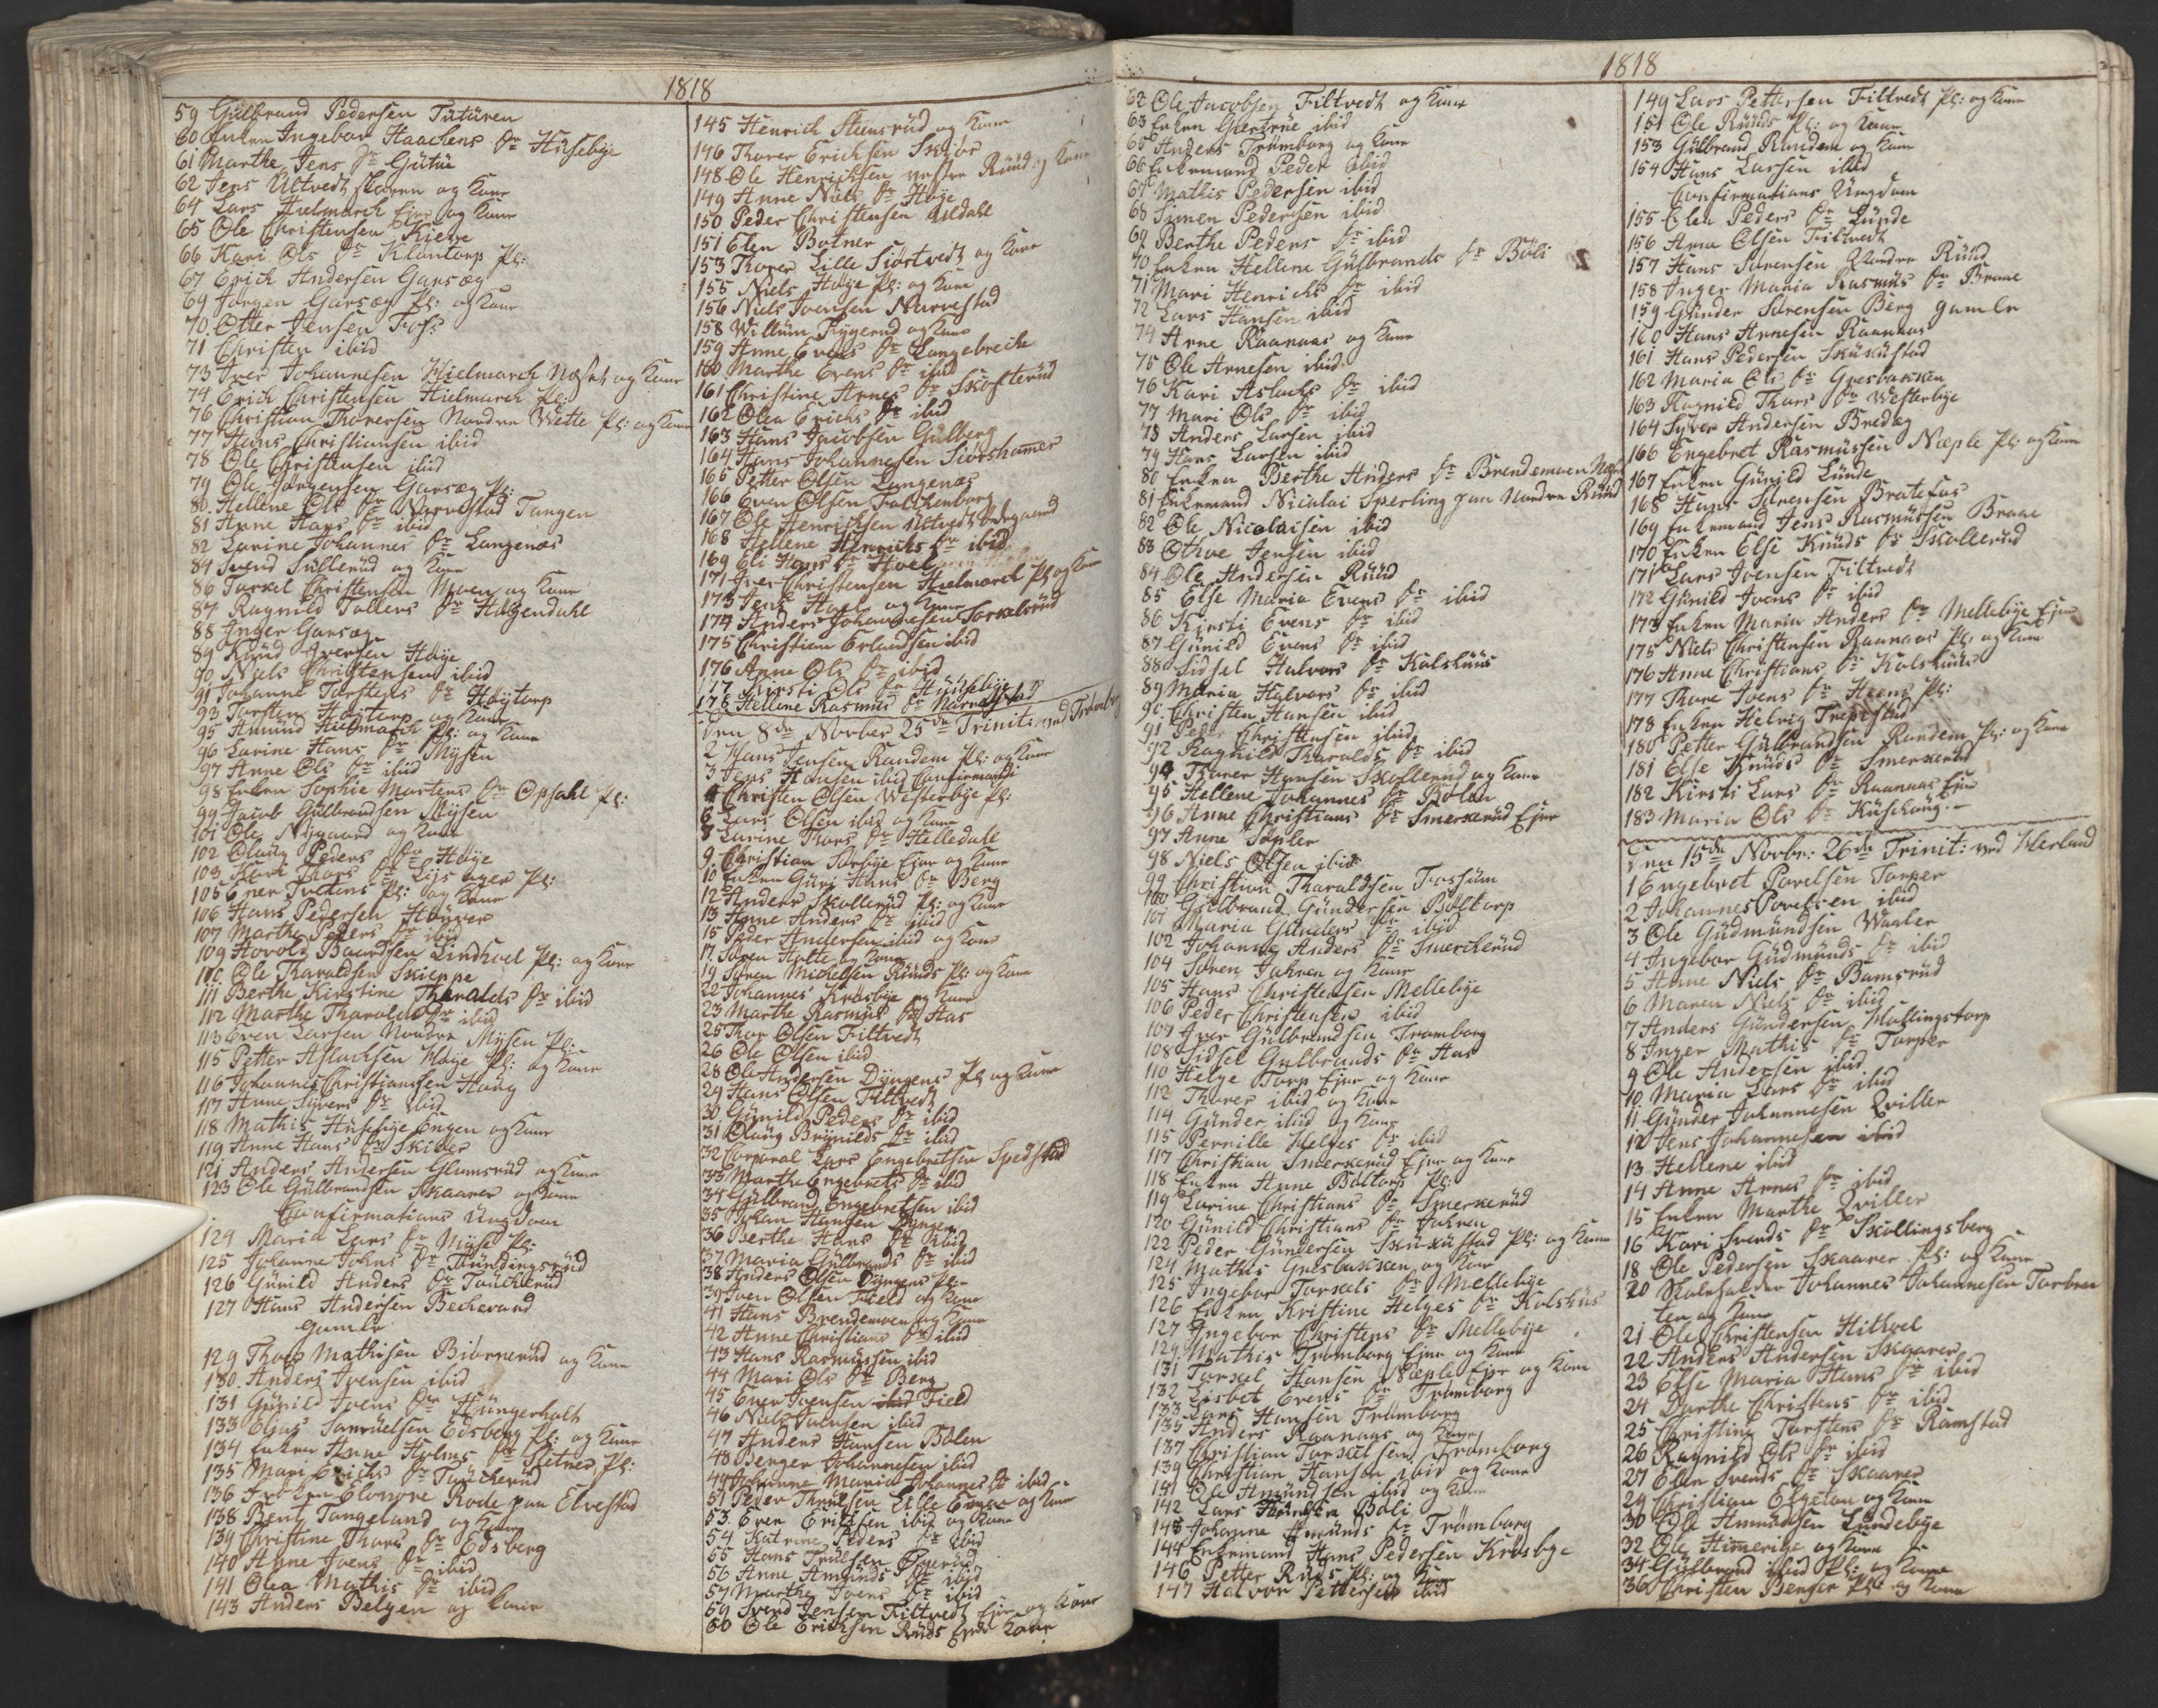 1818
59 Gülbrand Pedersen Tütüren
60 Enken Ingebor Haachens Dr Hüsebye
61 Marthe Jens Dr Gütüe
62 Jens Ültvedt skaren og Kone
64 Lars Hielmarch Ejer og Kone
65 Ole Christensen Kielve
66 Kari Ols Dr Klantorp Pl:
67 Erich Andersen Garsæg
69 Jørgen Garsæg Pl: og Kone
70. Otter Jensen Foss
71 Christen ibid
73 Iver Johannesen Hielmarch Næset og Kone
74 Erich Christensen Hielmarch Pl:
76 Christian Thoresen Nordre Wette Pl: og Kone
77 Hans Christiansen ibid
78 Ole Christensen ibid
79 Ole Jørgensen Garsæg Pl:
80. Hellene Ols Dr Narvestad Tangen
81 Anne Hans Dr ibid
82 Larine Johannes Dr Langenæs
84 Svend Sulterud og Kone
86 Torkel Christensen Moen og Kone
87 Ragnild Tollevs Dr Halgendahl
88 Inger Garsæg
89 Knüd Iversen Høye
90 Niels Christensen ibid
91 Johanne Torstens Dr Høytorp
93 Torsten Høytorp og Kone
95 Amund Hielmarch Pl: og Kone
96 Larine Hans Dr Mysen
97 Anne Ols Dr ibid
98 Enken Sophie Mortens Dr Opsahl Pl:
99 Jacob Gülbrandsen Mysen
101 Ole Nygaard og Kone
102 Olaüg Peders Dr Høye
103 Kari Thors Dr Lys ager Pl:
105 Ener Fuchens Pl: og Kone
106 Hans Pedersen Høyver
107 Marthe Peders Dr ibid
109 Hovold Baardsen Lindhoel Pl: og Kone
110 Ole Tharaldsen Skieppe
111 Berthe Kirstine Tharalds Dr ibid
112 Marthe Tharalds Dr ibid
113 Even Larsen Nordre Mysen Pl:
115 Petter Aslachsen Høye Pl: og Kone
116 Johannes Christiansen Haüg
117 Anne Syvers Dr ibid
118 Mathis Hüsebye Engen og Kone
119 Anne Hans Dr Skider
121 Anders Andersen Glomsrüd og Kone
123 Ole Gülbrandsen Skaarer og Kone
Confirmations Ungdom
124 Maria Lars Dr Myse Pl:
125 Johanne Johns Dr Kündingsrüd
126 Günild Anders Dr Taücherüd
127 Hans Andersen Bechevard
Gamle
129 Thore Mathisen Biørnerüd og Kone
130. Anders Ivensen ibid
131 Günild Joens Dr Hüngerholt
133 Elias Samuelsen Edsberg Pl: og Kone
134 Enken Anne Holms Dr Sletner Pl:
135 Mari Erichs Dr Taücherüd
136 Frøken Elonore Rode paa Elvestad
138 Bent Tangeland og Kone
139 Christine Thors Dr Edsberg
140 Anne Joens Dr ibid
141 Olea Mathis Dr ibid
143 Anders Belgen og Kone
145 Henrich Steensrüd og Kone
146 Thorer Erichsen Skiør
148 Ole Henrichsen vestre Rüüd og Kone
149 Anne Niels Dr Høye
150 Peder Christensen
151 Elen Botner
153 Thorer Lille Siortvedt og Kone
155 Niels Høye Pl: og Kone
156 Niels Ivensen Narvestad
158 Willum Frygerud og Kone
159 Anne Evens Dr Langebreche
160 Marthe Evens Dr ibid
161 Christine Arnes Dr Skofterüd
162 Olea Erichs Dr ibid
163 Hans Jacobsen Gülberg
164 Hans Johannesen Siørshamer
165 Petter Olsen Langenæs
166 Even Olsen Falchenborg
167 Ole Henrichsen Ultvedt Ødegaard
168 Hellene Henrichs Dr ibid
169 Eli Hans Dr Hoel
171 Iver Christensen Hielmarch Pl og Kone
173 Jens Hoel og Kone
174 Anders Johannesen Torkelsrüd
175 Christian Erlandsen ibid
176 Anne Ols Dr ibid
177 Kirsti Ols Dr Hüüsebye
178 Hellene Rasmus Dr Narvestad
Den 8de Novber 25de Trinit: ved Trømborg
2 Hans Jensen Randem Pl: og Kone
3 Jens Hansen ibid Confirmandi
4 Christen Olsen Westerbye Pl:
6 Lars Olsen ibid og Kone
8 Larine Thors Dr Helledahl
9. Christian Sørbye Ejer og Kone
10 Enken Güri Hans Dr Berg
12 Anders Skollerüd Pl: og Kone
13 Anne Anders Dr ibid
15 Peder Andersen ibid og Kone
17. Søren Holte og Kone
19 Søren Michelsen Rüüds Pl: og Kone
22 Johannes Krosbye og Kone
23 Marthe Rasmus Dr Aas
25 Thor Olsen Filtvedt
26 Ole Olsen ibid
28 Ole Andersen Dyngens Pl og Kone
29 Hans Olsen Filtvedt
30 Günild Peders Dr ibid
31 Olaüg Brynilds Dr ibid
32 Corporal Lars Engebretsen Spedstad
33 Marthe Engebrets Dr ibid
34 Gülbrand Engebretsen ibid
35 Johan Hansen Dyngen
36 Berthe Hans Dr ibid
37 Maria Gülbrands Dr ibid
38 Anders Olsen Dyngens Pl:
39 Iven Olsen Field og Kone
41 Hans Brendemoen og Kone
42 Anne Christians Dr ibid
43 Hans Rasmüssen ibid
44 Mari Ols Dr Berg
45 Ener Ivensen ibid Field
46 Niels Ivensen ibid
47 Anders Hansen Bølen
48 Berger Johannesen ibid
49 Johanne Maria Johannes Dr ibid
51 Peder Thrulsen Lille og Kone
53. Even Erichsen ibid og Kone
54 Katrine Peders Dr ibid
55 Hans Trülsen Øgerüd
56 Anne Amünds Dr ibid
57 Marthe Joens Dr ibid
59 Svend Jensen Filtvedt Ejer og Kone
60 Ole Erichsen Rüds Ejer Kone
1818
62 Ole Jacobsen Filtvedt og Kone
63 Enken Giertrüe ibid
65 Anders Trømborg og Kone
66 Enkemand Peder ibid
67 Mathis Pedersen ibid
68 Simen Pedersen ibid
69 Berthe Peders Dr ibid
70 Enken Hellene Gülbrands Dr Böli
71 Mari Henrichs Dr ibid
72 Lars Hansen ibid
74 Arne Raanaas og Kone
75 Ole Arnesen ibid
76 Kari Aslachs Dr ibid
77 Mari Ols Dr ibid
78 Anders Larsen ibid
79 Hans Larsen ibid
80 Enken Berthe Anders Dr Brendemoen
81 Enkemand Nicolai Sperling paa Nordre Rüüd
82 Ole Nicolaisen ibid
83 Othve Jensen ibid
84 Ole Andersen Rüüd
85 Else Maria Evens Dr ibid
86 Kirsti Evens Dr ibid
87 Günild Evens Dr ibid
88 Sidsel Halvors Dr Kolshüüs
89 Maria Halvors Dr ibid
90. Christen Hansen ibid
91 Peder Christensen ibid
92 Ragnild Tharalds Dr ibid
94 Thorer Hansen Skollerüd og Kone
95 Hellene Johannes Dr Bølen
96 Anne Christians Dr Smerkerüd Ejer
97 Anne Sæpler
98 Niels Olsen ibid
99 Christian Tharaldsen Fossüm
100 Gülbrand Gündersen Boltorp
101 Maria Günders Dr ibid
102 Johanne Anders Dr Smerckerüd
104 Søren Jahren og Kone
105 Hans Christensen Mellebye
106 Peder Christensen ibid
107 Iver Gülbrandsen Trømborg
108 Sidsel Gulbrands Dr Aas
110 Helge Torp Ejer og Kone
112 Thorer ibid og Kone
114 Günder ibid og Kone
115 Pernille Helges Dr ibid
117 Christian Smerkerüd Ejer og Kone
118 Enken Anne Boltorp Pl:
119 Larine Christians Dr Smerkerüd
120 Günild Christians Dr Jahren
122 Peder Gündersen Sküküstad Pl: og Kone
124 Mathis Gresbakken og Kone
125 Ingebor Torkels Dr Mellebye
126 Enken Kristine Helges Dr Kolshüs
127 Ingebor Christens Dr Mellebye
129 Mathis Trømborg Ejer og Kone
131 Torkel Hansen Næple Ejer og Kone
132 Lisbet Evens Dr Trømborg
133 Lars Hansen Trømborg
135 Anders Raanaas og Kone
137 Christian Torkelsen Trømborg
139 Christian Hansen ibid og Kone
141 Ole Amündsen ibid og Kone
142 Lars Böli
143 Johanne Amünds Dr Trømborg
144 Enkemand Hans Pedersen Krosbye
146 Petter Rüds Pl: og Kone
147 Halvor Pettersen ibid
149 Lars Pettersen Filtvedt Pl: og Kone
151 Ole Rüüds Pl: og Kone
153 Gülbrand Randem og Kone
154 Hans Larsen ibid
Confirmations Ungdom
155 Elen Peders Dr Lünde
156 Arne Olsen Filtvedt
157 Hans Sørensen Nordre Rüüd
158 Inger Maria Rasmus Dr Braae
159 Günder Sørensen Berg gamle
160 Hans Arnesen Raanaas
161 Hans Pedersen Sküküstad
162 Maria Ols Dr Gresbakken
163 Ragnild Thors Dr Westerbye
164 Syver Andersen Bredeg
166 Engebret Rasmüssen Næple Pl: og Kone
167 Enken Günild Lünde
168 Hans Sørensen Bratefos
169 Enkemand Jens Rasmüssen Braae
170 Enken Else Knüds Dr Skollerüd
171 Lars Ivensen Filtvedt
172 Günild Ivens Dr ibid
173 Enken Maria Anders Dr Mellebye Ejer
175 Niels Christensen Raanaas Pl: og Kone
176 Anne Christians Dr Kolshüüs
177 Thore Ivens Dr Heens Pl:
178 Enken Helvig Trepestad
180 Petter Gülbrandsen Randem Pl: og Kone
181 Else Knüds Dr Smerkerüd
182 Kirsti Lars Dr Raanaas Ejer
183 Maria Ols Dr Küshaüg.
Den 15de Novbr: 26de Trinit: ved Herland
1 Engebret Povelsen Torper
2 Johannes Povelsen ibid
3 Ole Güdmündsen Waaler
4 Ingebor Güdmünds Dr ibid
5 Anne Niels Dr Bamsrüd
6 Maren Niels Dr ibid
7 Anders Gündersen Mallingstorp
8 Inger Mathis Dr Torper
9 Ole Andersen ibid
10 Maria Lars Dr ibid
11 Günder Johannesen Qviller
12 Jens Johannesen ibid
13 Hellene ibid
14 Anne Arnes Dr ibid
15 Enken Marthe Qviller
16 Kari Svends Dr Skollingsberg
18 Ole Pedersen Skaarer Pl: og Kone
20 Skoleholder Johannes Johannesen Torbraa
ten og Kone
21 Ole Christensen Hithoel
22 Anders Andersen Skaarer
23 Else Maria Hans Dr ibid
24 Dorthe Christens Dr ibid
25 Christine Torstens Dr Ramstad
26 Ragnild Ols Dr ibid
27 Elen Svends Dr Skaarer
29 Christian Elgetun og Kone
30 Ole Amündsen Lündebye
32 Ole Himerike og Kone
34 Gülbrand ibid Pl: og Kone
36 Christen Berger Pl: og Kone